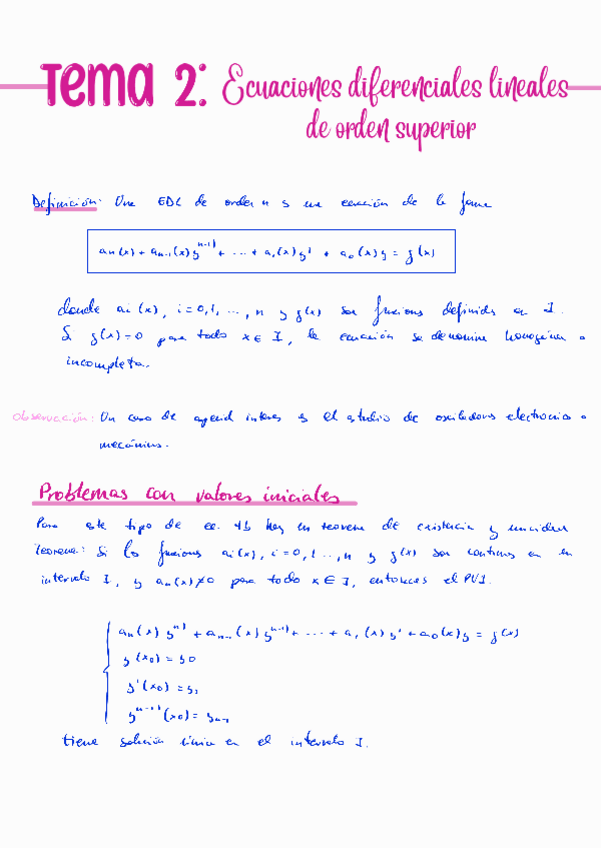 Tema 2: Ecuaciones diferenciales lineales
de orden superior
Definición: Una EDL de orden n es una ecuación de la forma
an(x) + an-1(x) y^(n-1) + ... + a1(x) y' + a0(x) y = g(x)
donde ai(x), i=0,1, ..., n y g(x) son funciones definidas en I.
Si g(x)=0 para todo x ∈ I, la ecuación se denomina homogénea o
incompleta.
Observación: Un caso de especial interes es el estudio de osciladores electronicos o
mecánicos.
Problemas con valores iniciales
Para este tipo de ec. tb hay un teorema de existencia y unicidad
Teorema: Si las funciones ai(x), i=0,1...,n y g(x) son continuas en un
intervalo I, y an(x)≠0 para todo x ∈ I, entonces el PVI.
an(x) y^(n) + an-1(x) y^(n-1) + ... + a1(x) y' + a0(x) y = g(x)
y(x0) = y0
y'(x0) = y1
y^(n-1)(x0) = yn-1
tiene solución única en el intervalo I.